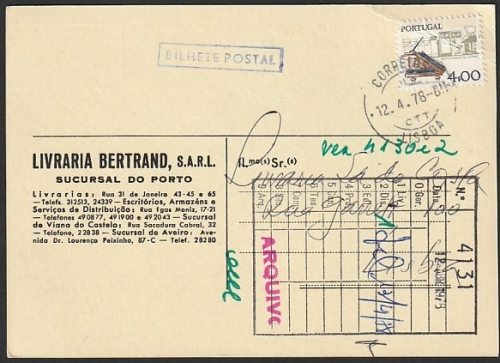 BILHETE POSTAL
PORTUGAL
4.00
CORREIOS
12.4.78
CTT
LISBOA
ver 4130 e 2
LIVRARIA BERTRAND, S.A.R.L.
SUCURSAL DO PORTO
Livrarias: Rua 31 de Janeiro 43-45 e 65
—Telefs. 312513, 24339 — Escritórios, Armazéns e
Serviços de Distribuição: Rua Igas Moniz, 17-21
—Telefones 490877, 491900 e 492043 — Sucursal
de Viana do Castelo: Rua Sacadura Cabral, 32
—Telefone, 22838 — Sucursal do Aveiro: Ave-
nida Dr. Lourenço Peixinho, 87-C — Telef. 28280
Il.mo(s) Sr.(s)
Livraria Sá da Costa
Rua Garrett 100
Lisboa
N.º 4131
Data
ARQUIVO